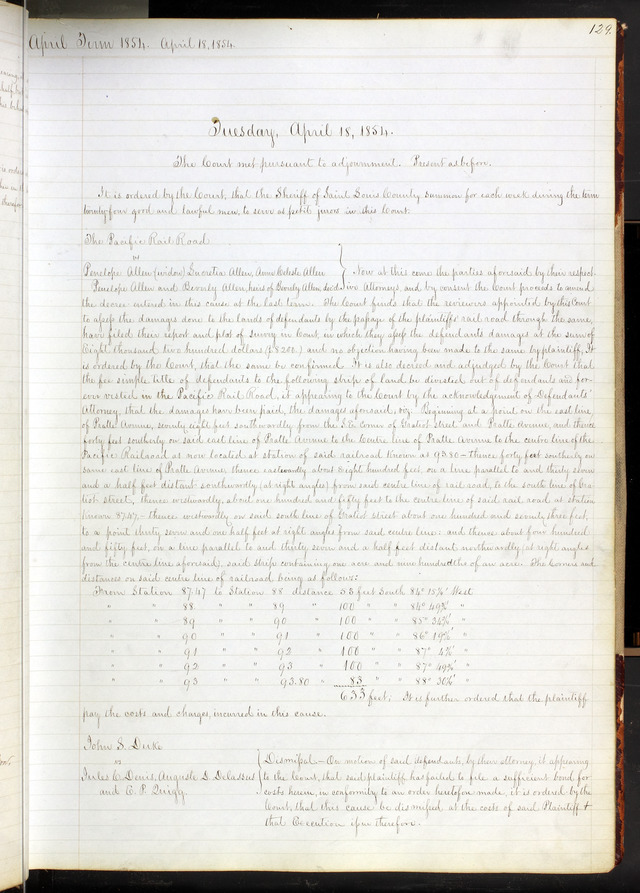 129.
April Term 1854. April 18, 1854.
Tuesday, April 18, 1854.
The Court met pursuant to adjournment. Present as before.
It is ordered by the Court, that the Sheriff of Saint Louis County summon for each week during the term
twenty four good and lawful men, to serve as petit jurors in this Court.
The Pacific Rail Road
vs
Penelope Allen (widow) Lucretia Allen, Anne Celeste Allen
Penelope Allen and Beverly Allen, heirs of Beverly Allen, decd.
Now at this come the parties aforesaid by their respect-
ive Attorneys, and by consent the Court proceeds to amend
the decree entered in this cause at the last term. The Court finds that the reviewers appointed by this Court
to assess the damages done to the lands of defendants by the passage of the plaintiffs rail road through the same,
have filed their report and plot of survey in Court, in which they assess the defendants damages at the sum of
Eight thousand two hundred dollars ($8200.) and no objection having been made to the same by plaintiff, It
is ordered by the Court, that the same be confirmed. It is also decreed and adjudged by the Court that
the fee simple title of defendants to the following strip of land be divested out of defendants and for-
ever vested in the Pacific Rail Road, it appearing to the Court by the acknowledgement of Defendants'
Attorney that the damages have been paid, the damages aforesaid, viz. Beginning at a point on the east line,
of Pratte Avenue, seventy eight feet southwardly from the S.E. corner of Gratiot street and Pratte Avenue, and thence
forty feet southerly on said east line of Pratte Avenue to the Centre line of Pratte Avenue to the centre line of the
Pacific Railroad as now located at station of said railroad known as 93.80 – thence forty feet southerly on
same east line of Pratte Avenue, thence eastwardly about Eight hundred feet, on a line parallel to and thirty seven
and a half feet distant southwardly (at right angles) from said centre line of rail road, to the south line of Gra-
tiot street, thence westwardly, about one hundred and fifty feet to the centre line of said rail road at station
known 87.47 – thence westwardly on said south line of Gratiot street about one hundred and seventy three feet,
to a point thirty seven and one half feet at right angles from said centre line: and thence about four hundred
and fifty feet, on a line parallel to and thirty seven and a half feet distant northwardly (at right angles
from the centre line aforesaid, said strip containing one acre and hundredths of an acre. The courses and
distances on said centre line of railroad being as follows:
From Station 87.47 to Station 88 distance 53 feet South 84° 15½' West
" " 88 " " 89 " 100 " " 84° 49¾' "
" " 89 " " 90 " 100 " " 85° 34¾' "
" " 90 " " 91 " 100 " " 86° 19¾' "
" " 91 " " 92 " 100 " " 87° 4¾' "
" " 92 " " 93 " 100 " " 87° 49¾' "
" " 93 " " 93.80 " 83 " " 88° 30¾' "
633 feet; It is further ordered that the plaintiff
pay the costs and charges, incurred in this cause.
John S.
vs
Jules C. Denis, Auguste D. Delassus
and C. P.
Dismissal – On motion of said defendants, by their attorney, it appearing
to the Court, that said plaintiff has failed to file a sufficient bond for
costs herein, in conformity to an order heretofore made, it is ordered by the
Court, that this cause be dismissed at the costs of said Plaintiff, &
that Execution issue therefore.